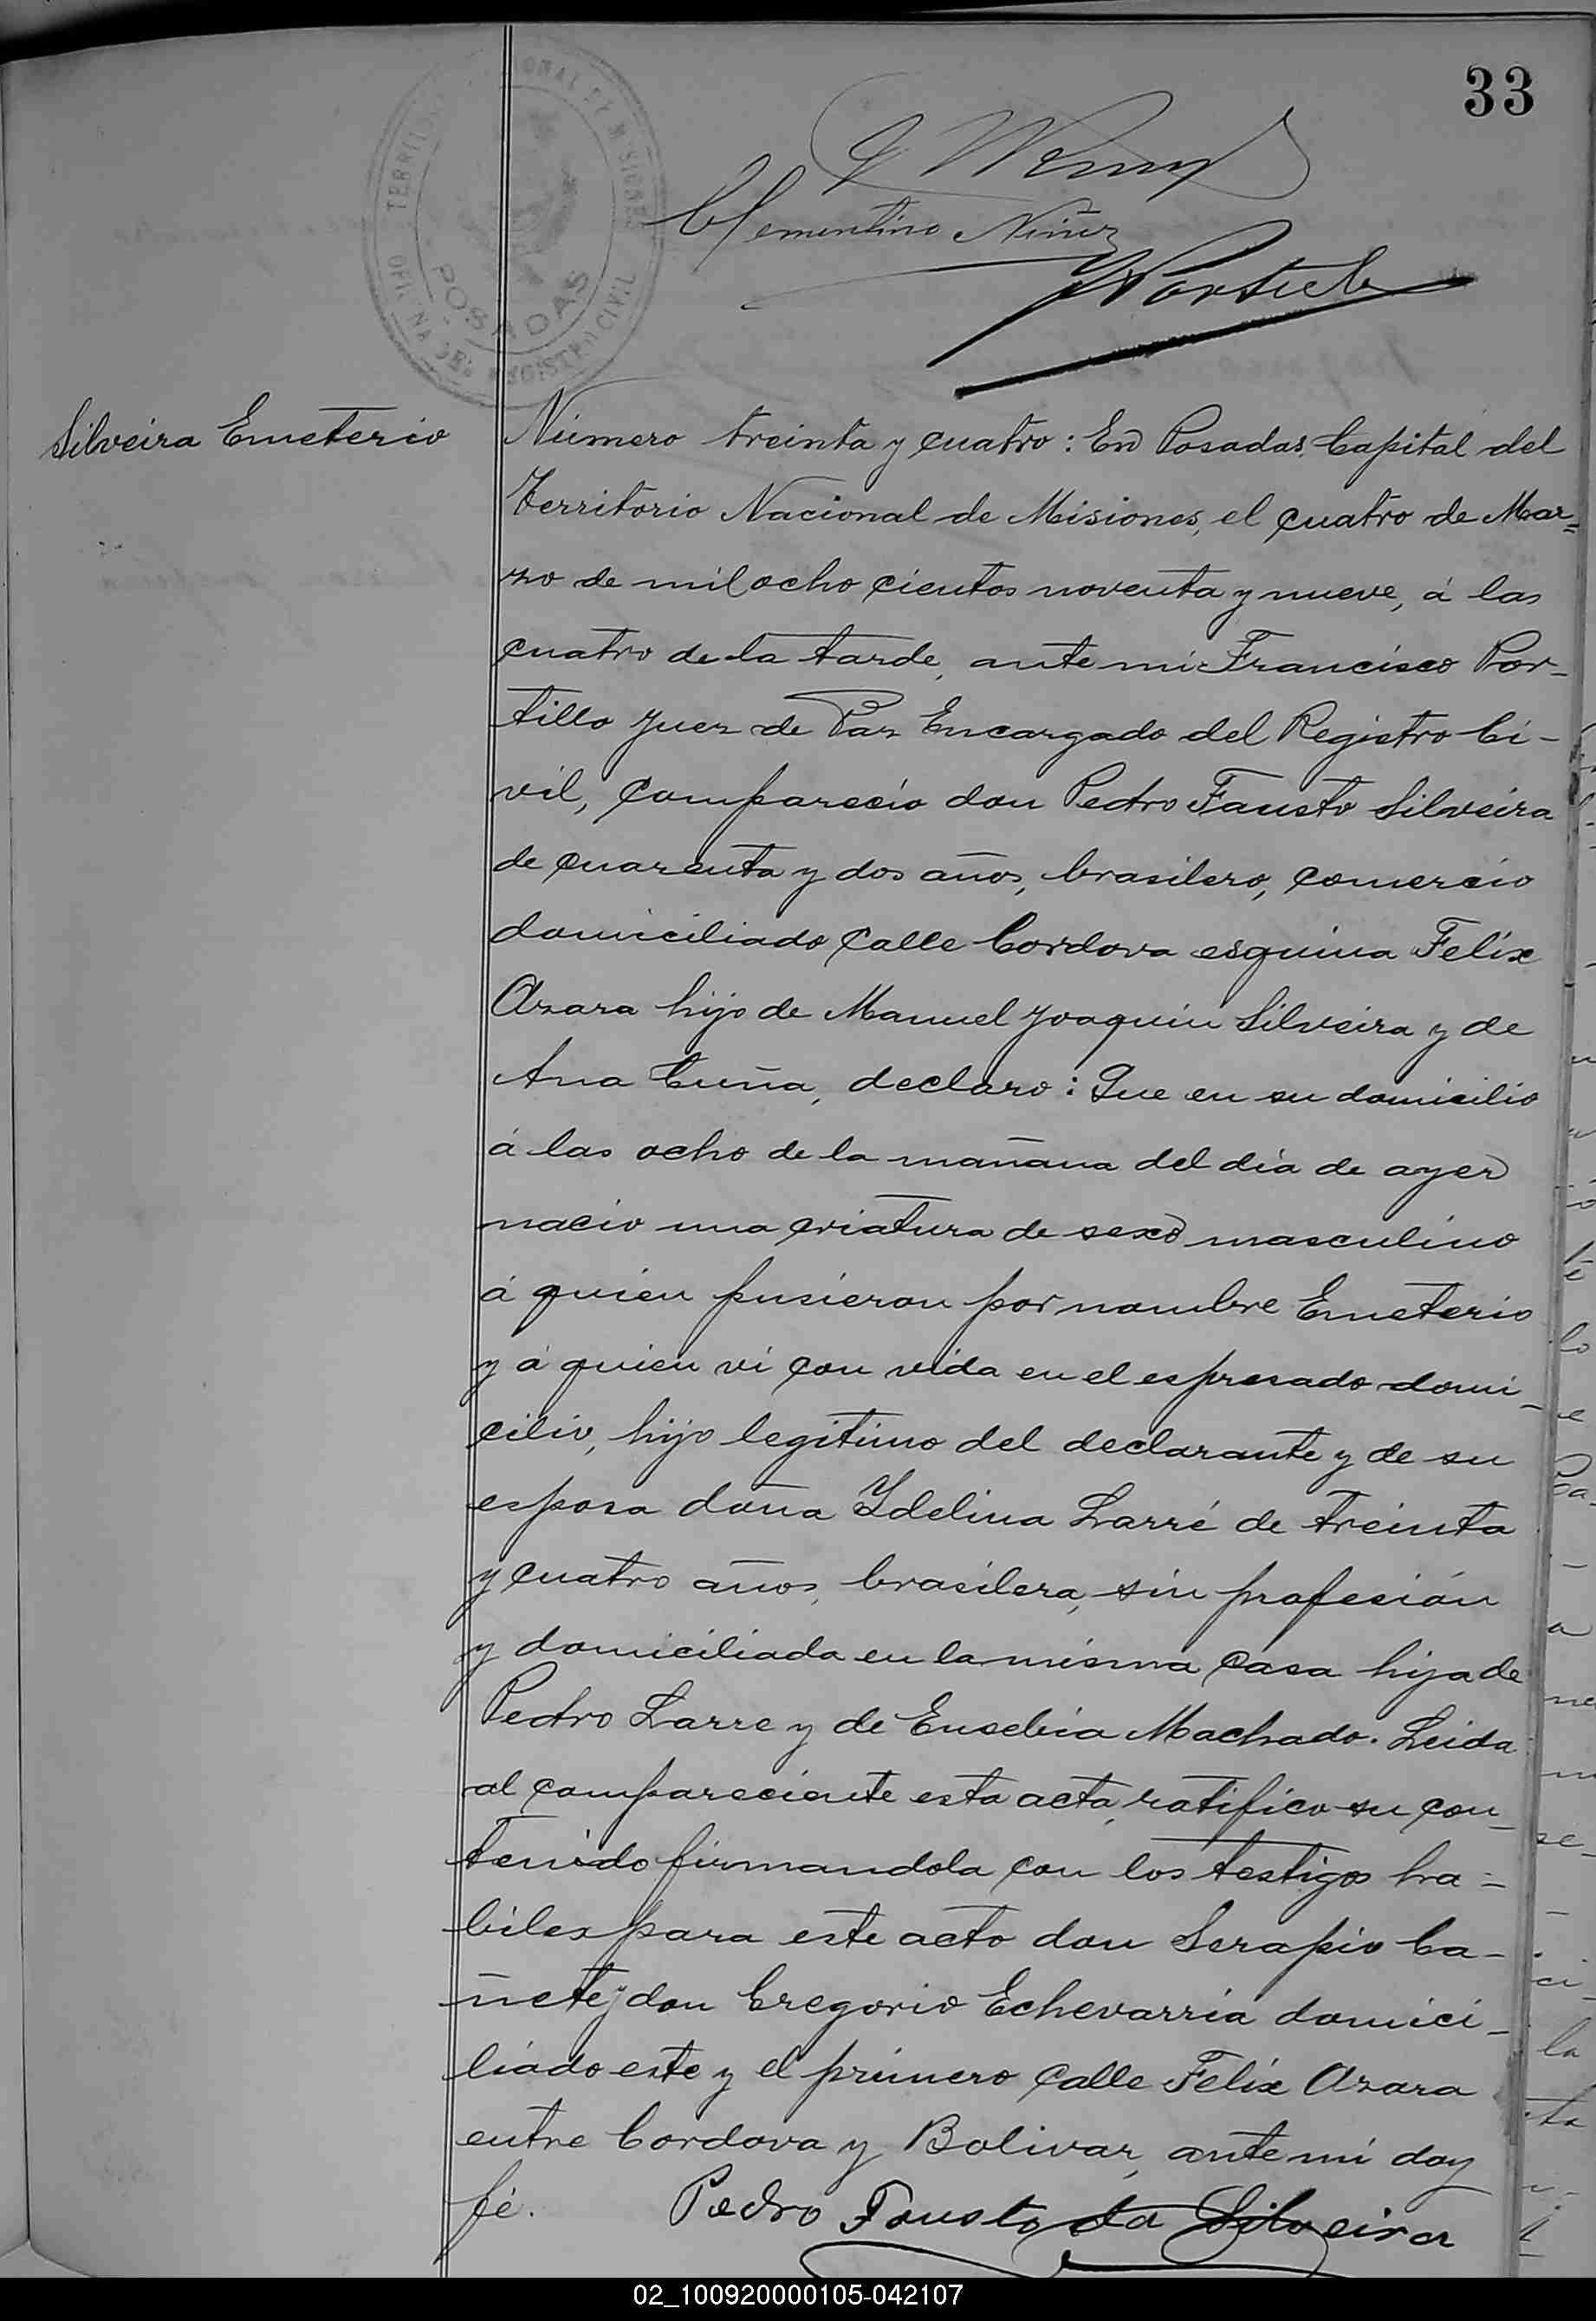 33
TERRITORIO NACIONAL DE MISIONES
POSADAS
OFICINA DEL REGISTRO CIVIL
Clementino Niñez
FPortillo
Silveira Emeterio
Número treinta y cuatro: En Posadas, Capital del
Territorio Nacional de Misiones, el cuatro de Mar=
zo de mil ocho cientos noventa y nueve, á las
cuatro de la tarde, ante mi Francisco Por-
tillo Juez de Paz Encargado del Registro Ci-
vil, comparecio don Pedro Fausto Silveira
de cuarenta y dos años, brasilero, comercio
domiciliado calle Cordova esquina Felix
Azara hijo de Manuel Joaquin Silveira y de
Ana Cuña, declaro: Que en su domicilio
á las ocho de la mañana del dia de ayer
nacio una criatura de sexo masculino
á quien pusieron por nombre Emeterio
y á quien vi con vida en el espresado domi-
cilio, hijo legitimo del declarante y de su
esposa doña Ydelina Larré de treinta
y cuatro años, brasilera, sin profesión
y domiciliada en la misma casa hija de
Pedro Larre y de Eusebia Machado. Leida
al compareciente esta acta, ratifico su con-
tenido firmandola con los testigos ha=
biles para este acto don Serapio Ca-
ñete y don Gregorio Echevarria domici-
liado este y el primero calle Felix Azara
entre Cordova y Bolivar, ante mi doy
fé.
Pedro Fausto da Silveira
02_100920000105-042107